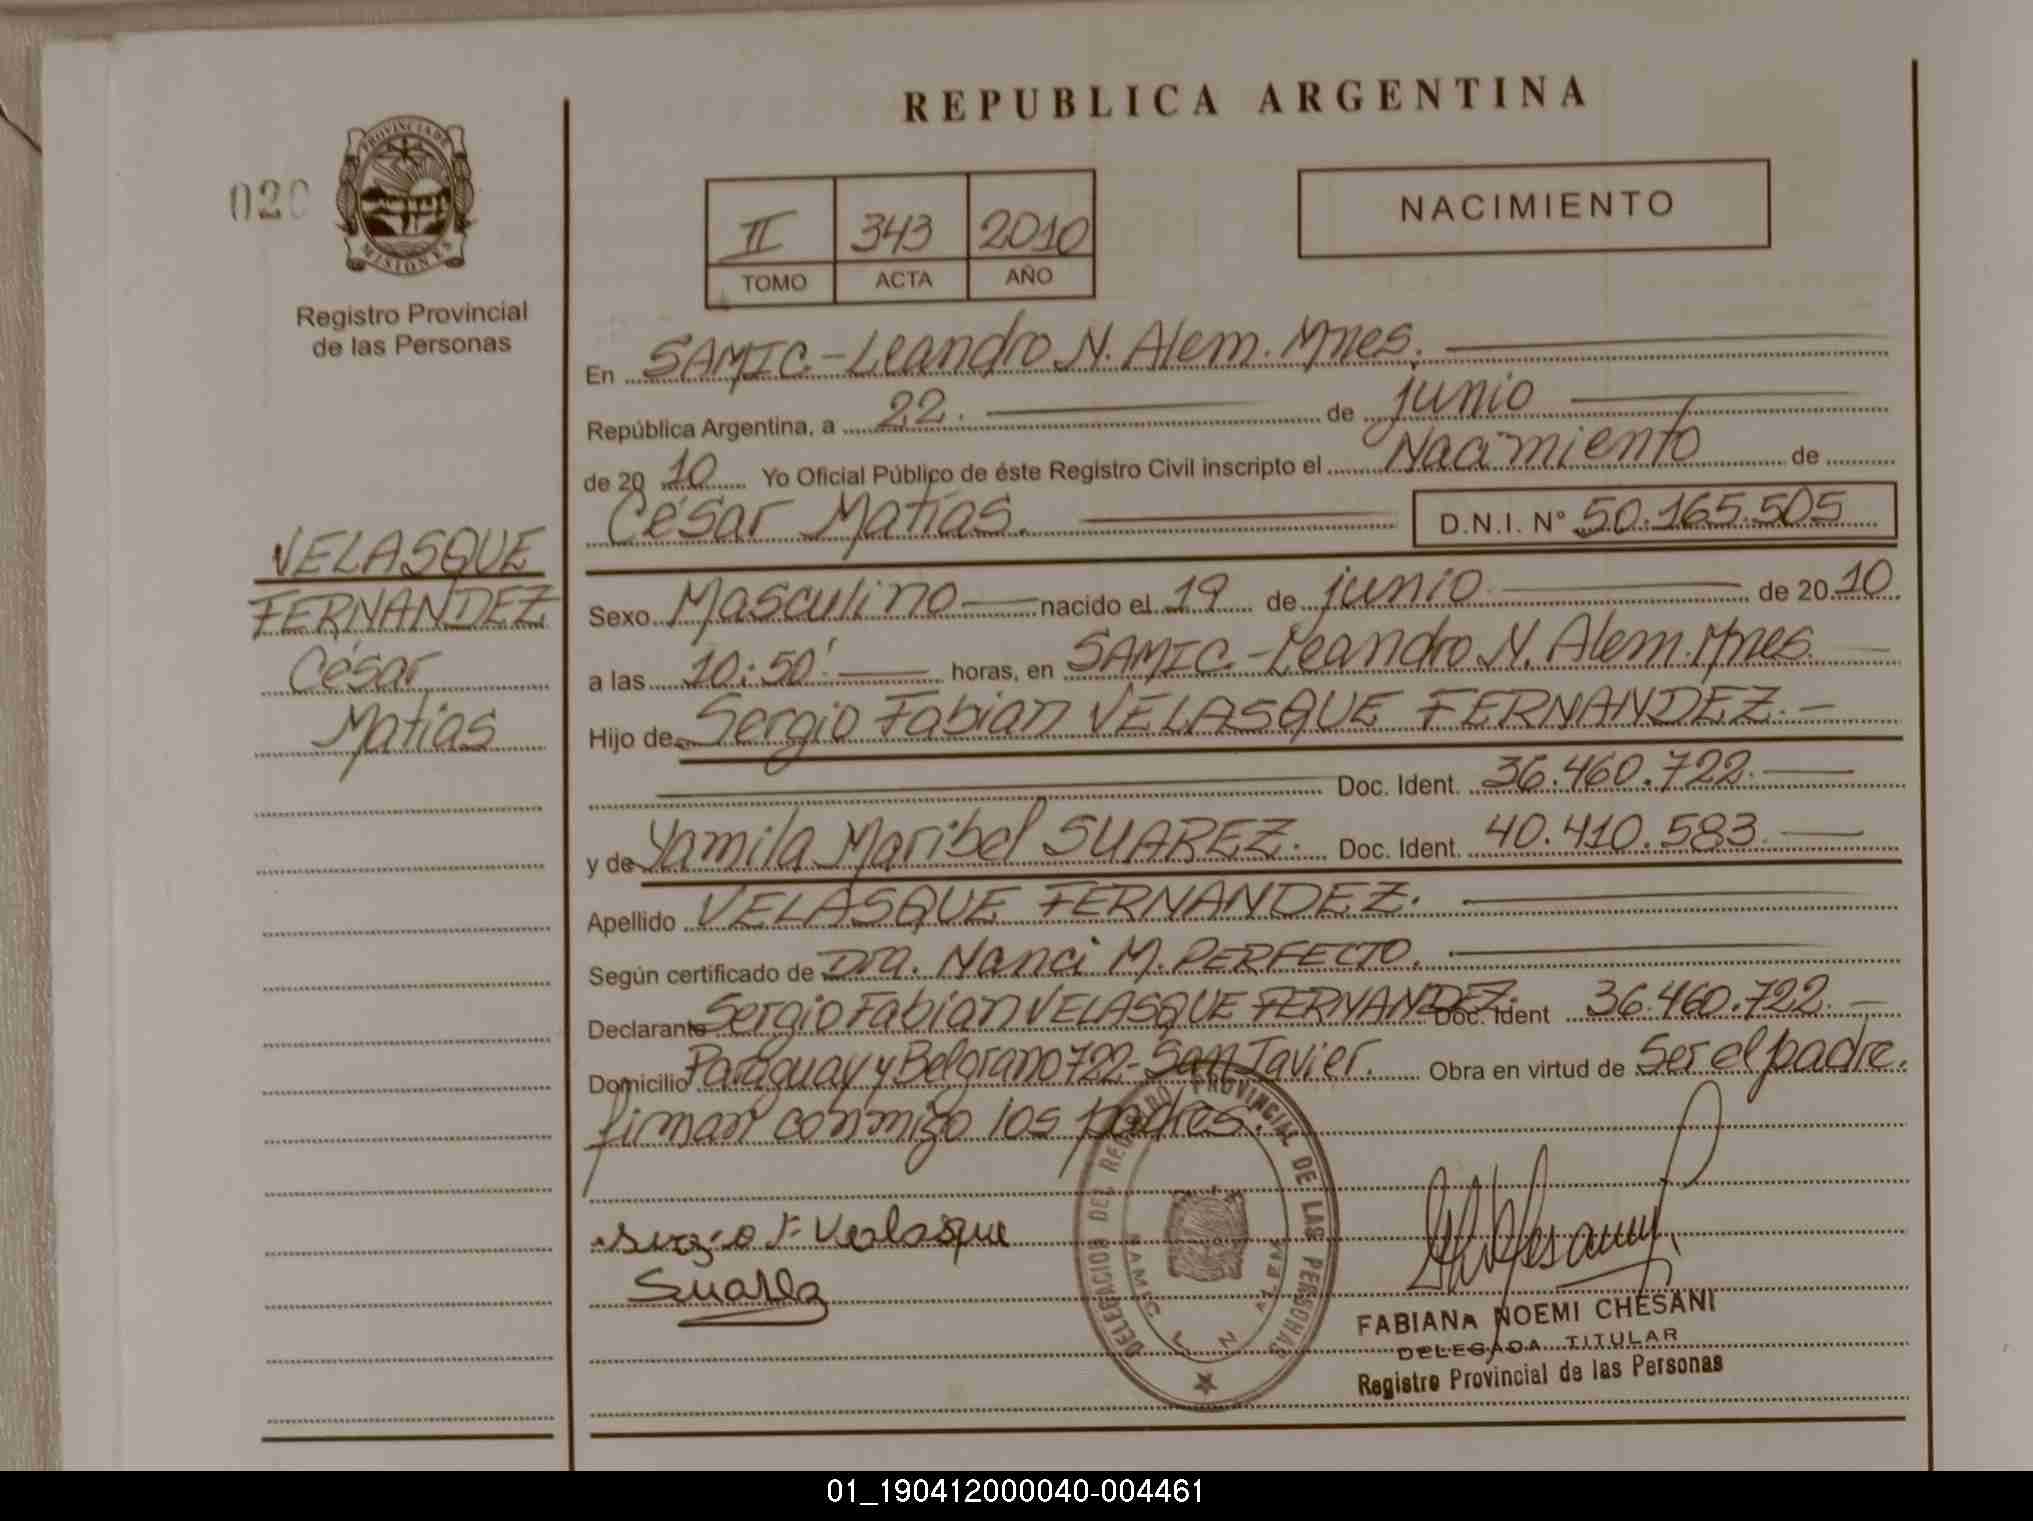 REPUBLICA ARGENTINA
020
PROVINCIA DE MISIONES
Registro Provincial
de las Personas
II 343 2010
TOMO ACTA AÑO
NACIMIENTO
En SAMIC - Leandro N. Alem. Mnes.
República Argentina, a 22. de junio
de 20 10 Yo Oficial Público de éste Registro Civil inscripto el Nacimiento de
César Matías. D.N.I. N° 50.165.505
VELASQUE
FERNANDEZ
César
Matías
Sexo Masculino nacido el 19 de junio de 20 10
a las 10:50' horas, en SAMIC - Leandro N. Alem. Mnes.
Hijo de Sergio Fabian VELASQUE FERNANDEZ. -
Doc. Ident. 36.460.722.
y de Yamila Maribel SUAREZ. Doc. Ident. 40.410.583.
Apellido VELASQUE FERNANDEZ.
Según certificado de Dra. Nanci M. PERFECTO.
Declarante Sergio Fabian VELASQUE FERNANDEZ. Doc. Ident 36.460.722. -
Domicilio Paraguay y Belgrano 722 - San Javier. Obra en virtud de Ser el padre.
firman conmigo los padres.
DELEGACION DEL REGISTRO PROVINCIAL DE LAS PERSONAS
SAMIC L N ALEM
Sergio F Velasque
Suarez
FABIANA NOEMI CHESANI
DELEGADA TITULAR
Registro Provincial de las Personas
01_190412000040-004461